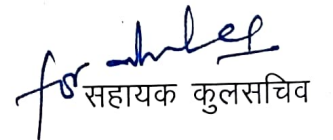 for
सहायक कुलसचिव